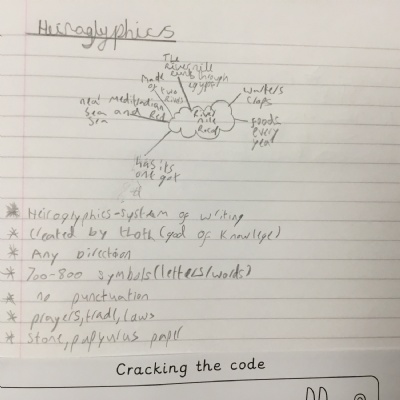 Hieroglyphics
The
River nile
runs through
egypt
Made
of two
Rivers
near Meditranian
Sea and Red
Sea
River
nile
waters
crops
floods
every
year
has its
one god
* Heiroglyphics-system of writing
* Created by thoth (god of knowlege)
* Any direction
* 700-800 symbols (letters/words)
* no punctuation
* prayers, trade, laws
* Stone, papyrus paper
Cracking the code